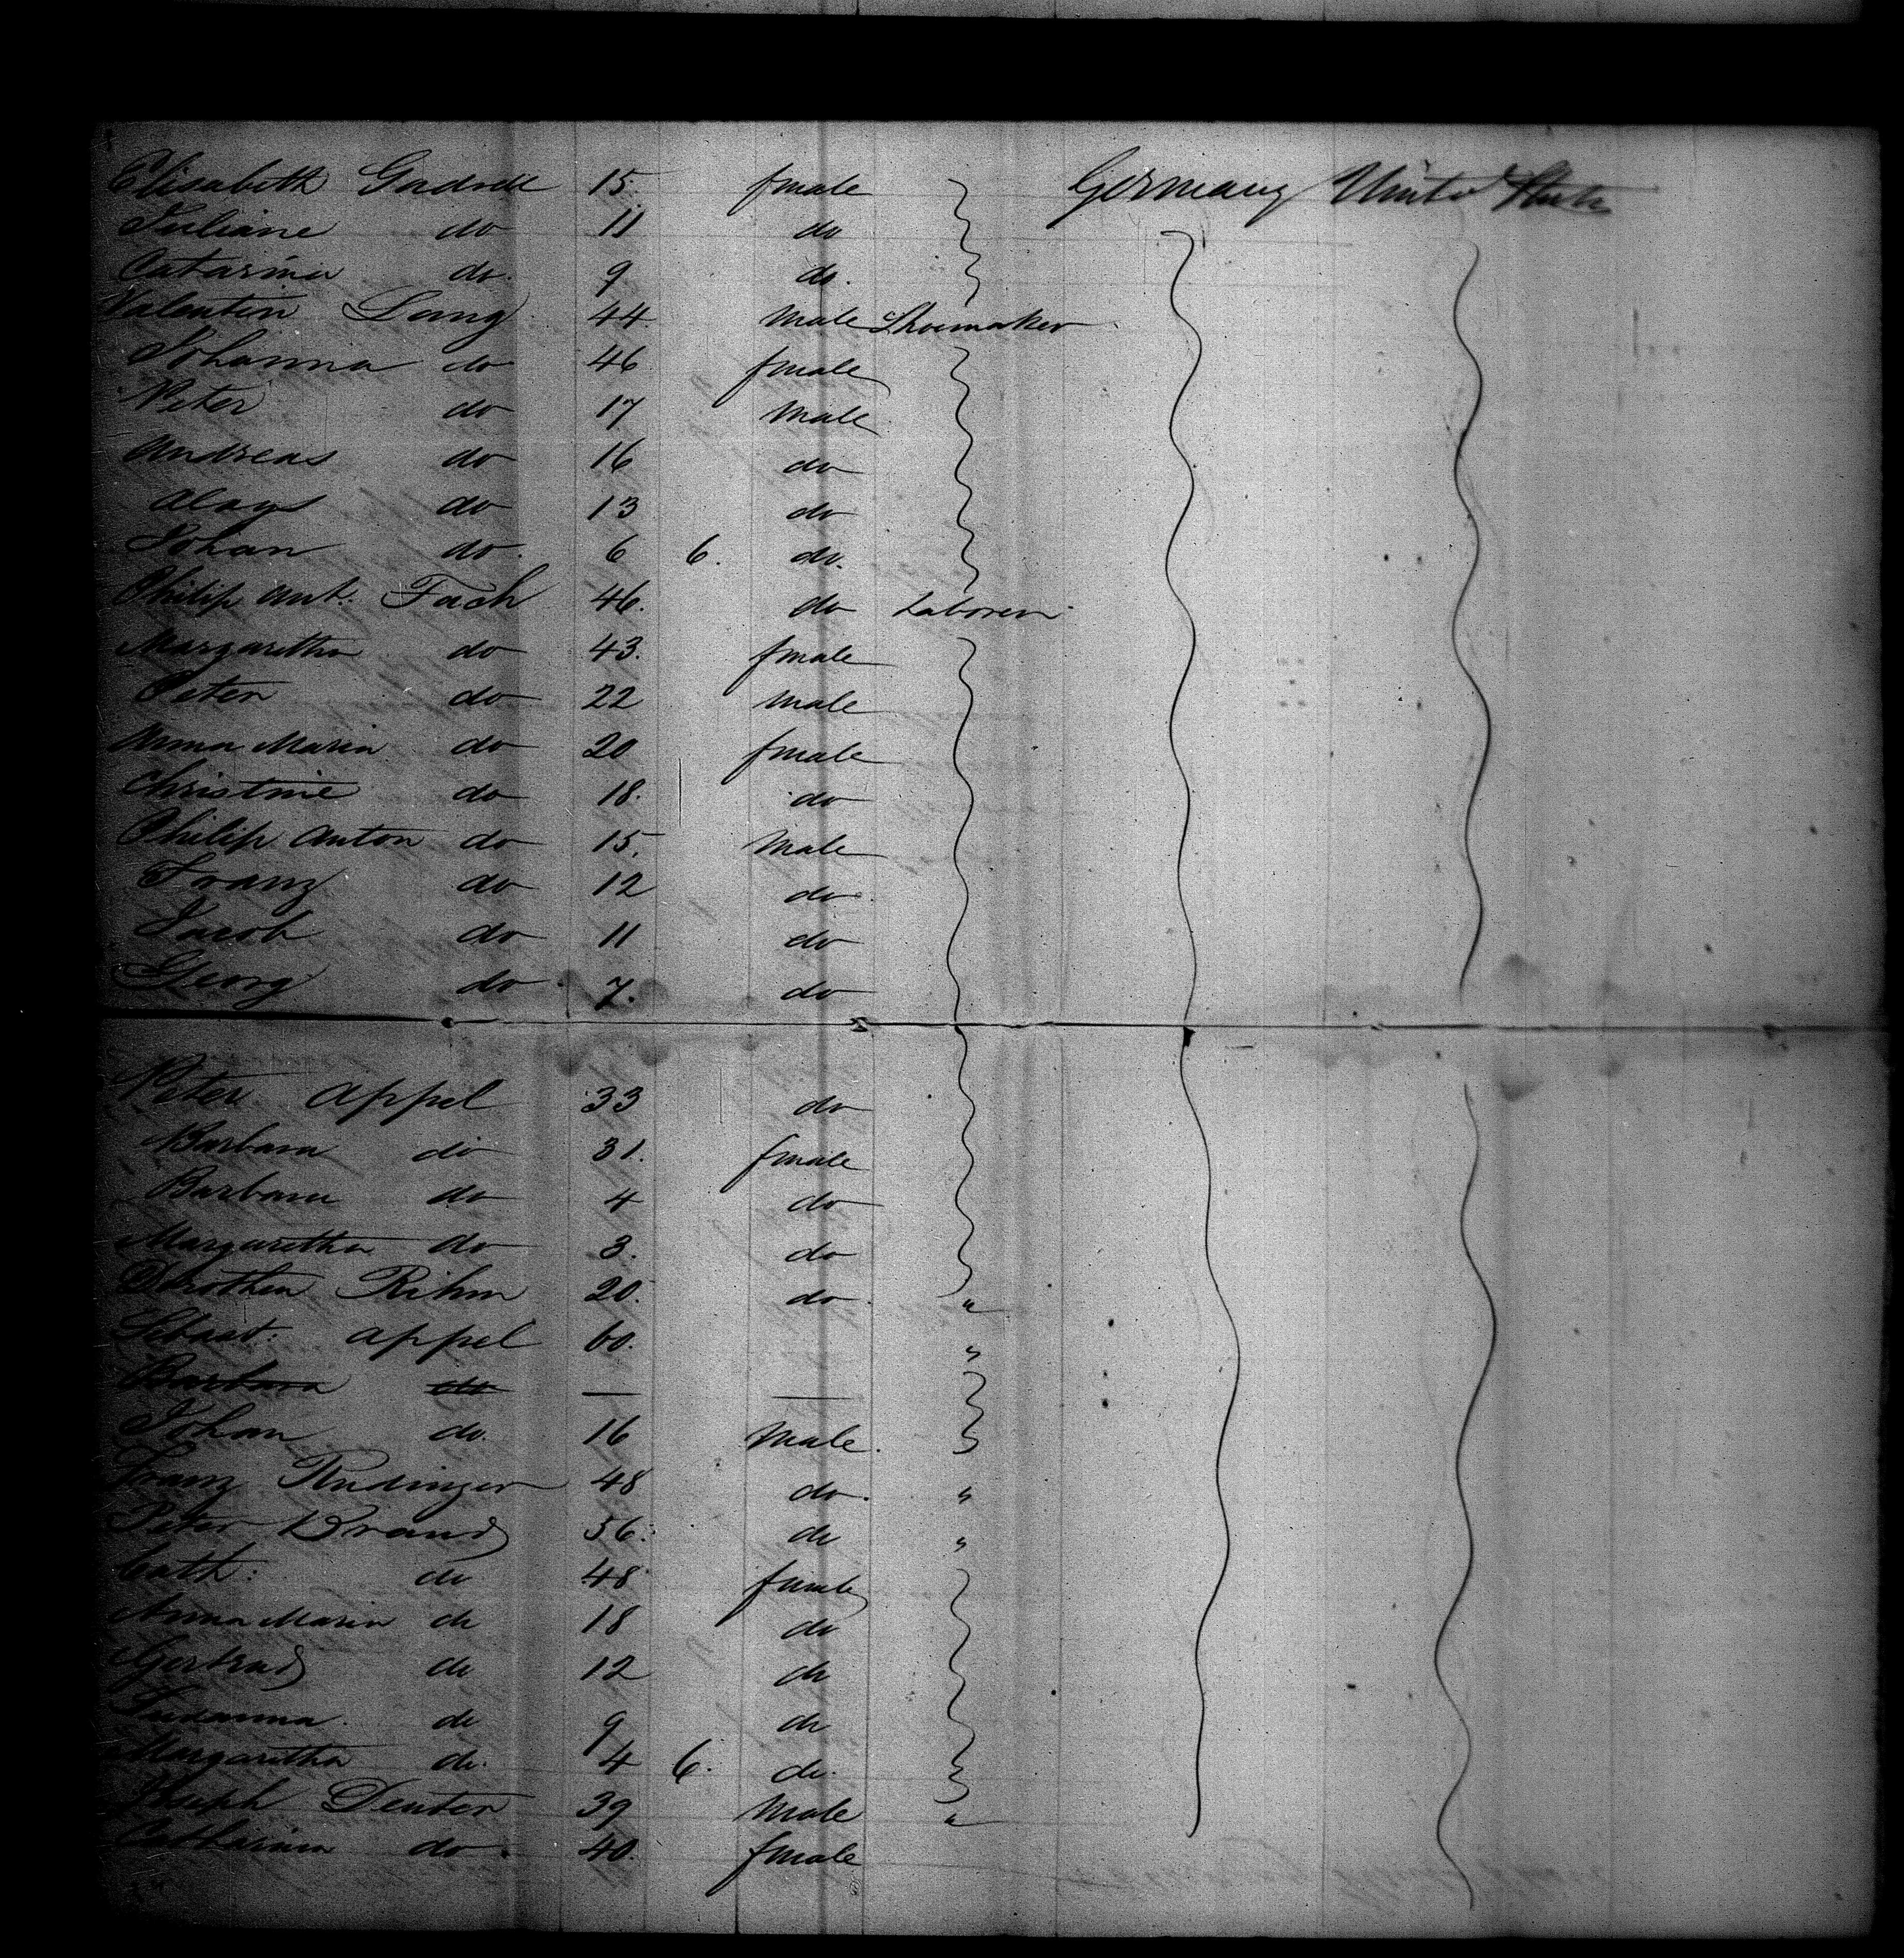 Elisabeth 15. female Germany United States
Juliane do 11 do
Catarina do. 9 do.
Valentin Lang 44 Male Shoemaker
Johanna do 46 female
Peter do 17 Male
Andreas do 16 do
Aloys do 13 do
Johan do. 6 6. do.
Philip Ant. Fach 46. do Laborer
Margaretha do 43. female
Peter do 22 Male
Anna Maria do 20 female
Christine do 18. do
Philip Anton do 15. Male
Franz do 12 do
Jacob do 11 do
Georg do 7. do
Peter Appel 33 do
Barbara do 31. female
Barbara do 4 do
Margaretha do 3. do
Dorothea Rihm 20. do. "
Sebast: Appel 60. "
Barbara do — —
Johan do. 16 Male.
Franz Rudinger 48 do. "
Peter Brand 56. do "
Cath: do 48 female
Anna Maria do 18 do
Gertrud do 12 do
Susanna do 9 do
Margaretha do. 4 6. do.
Joseph Deuter 39 Male "
Catharina do. 40. female